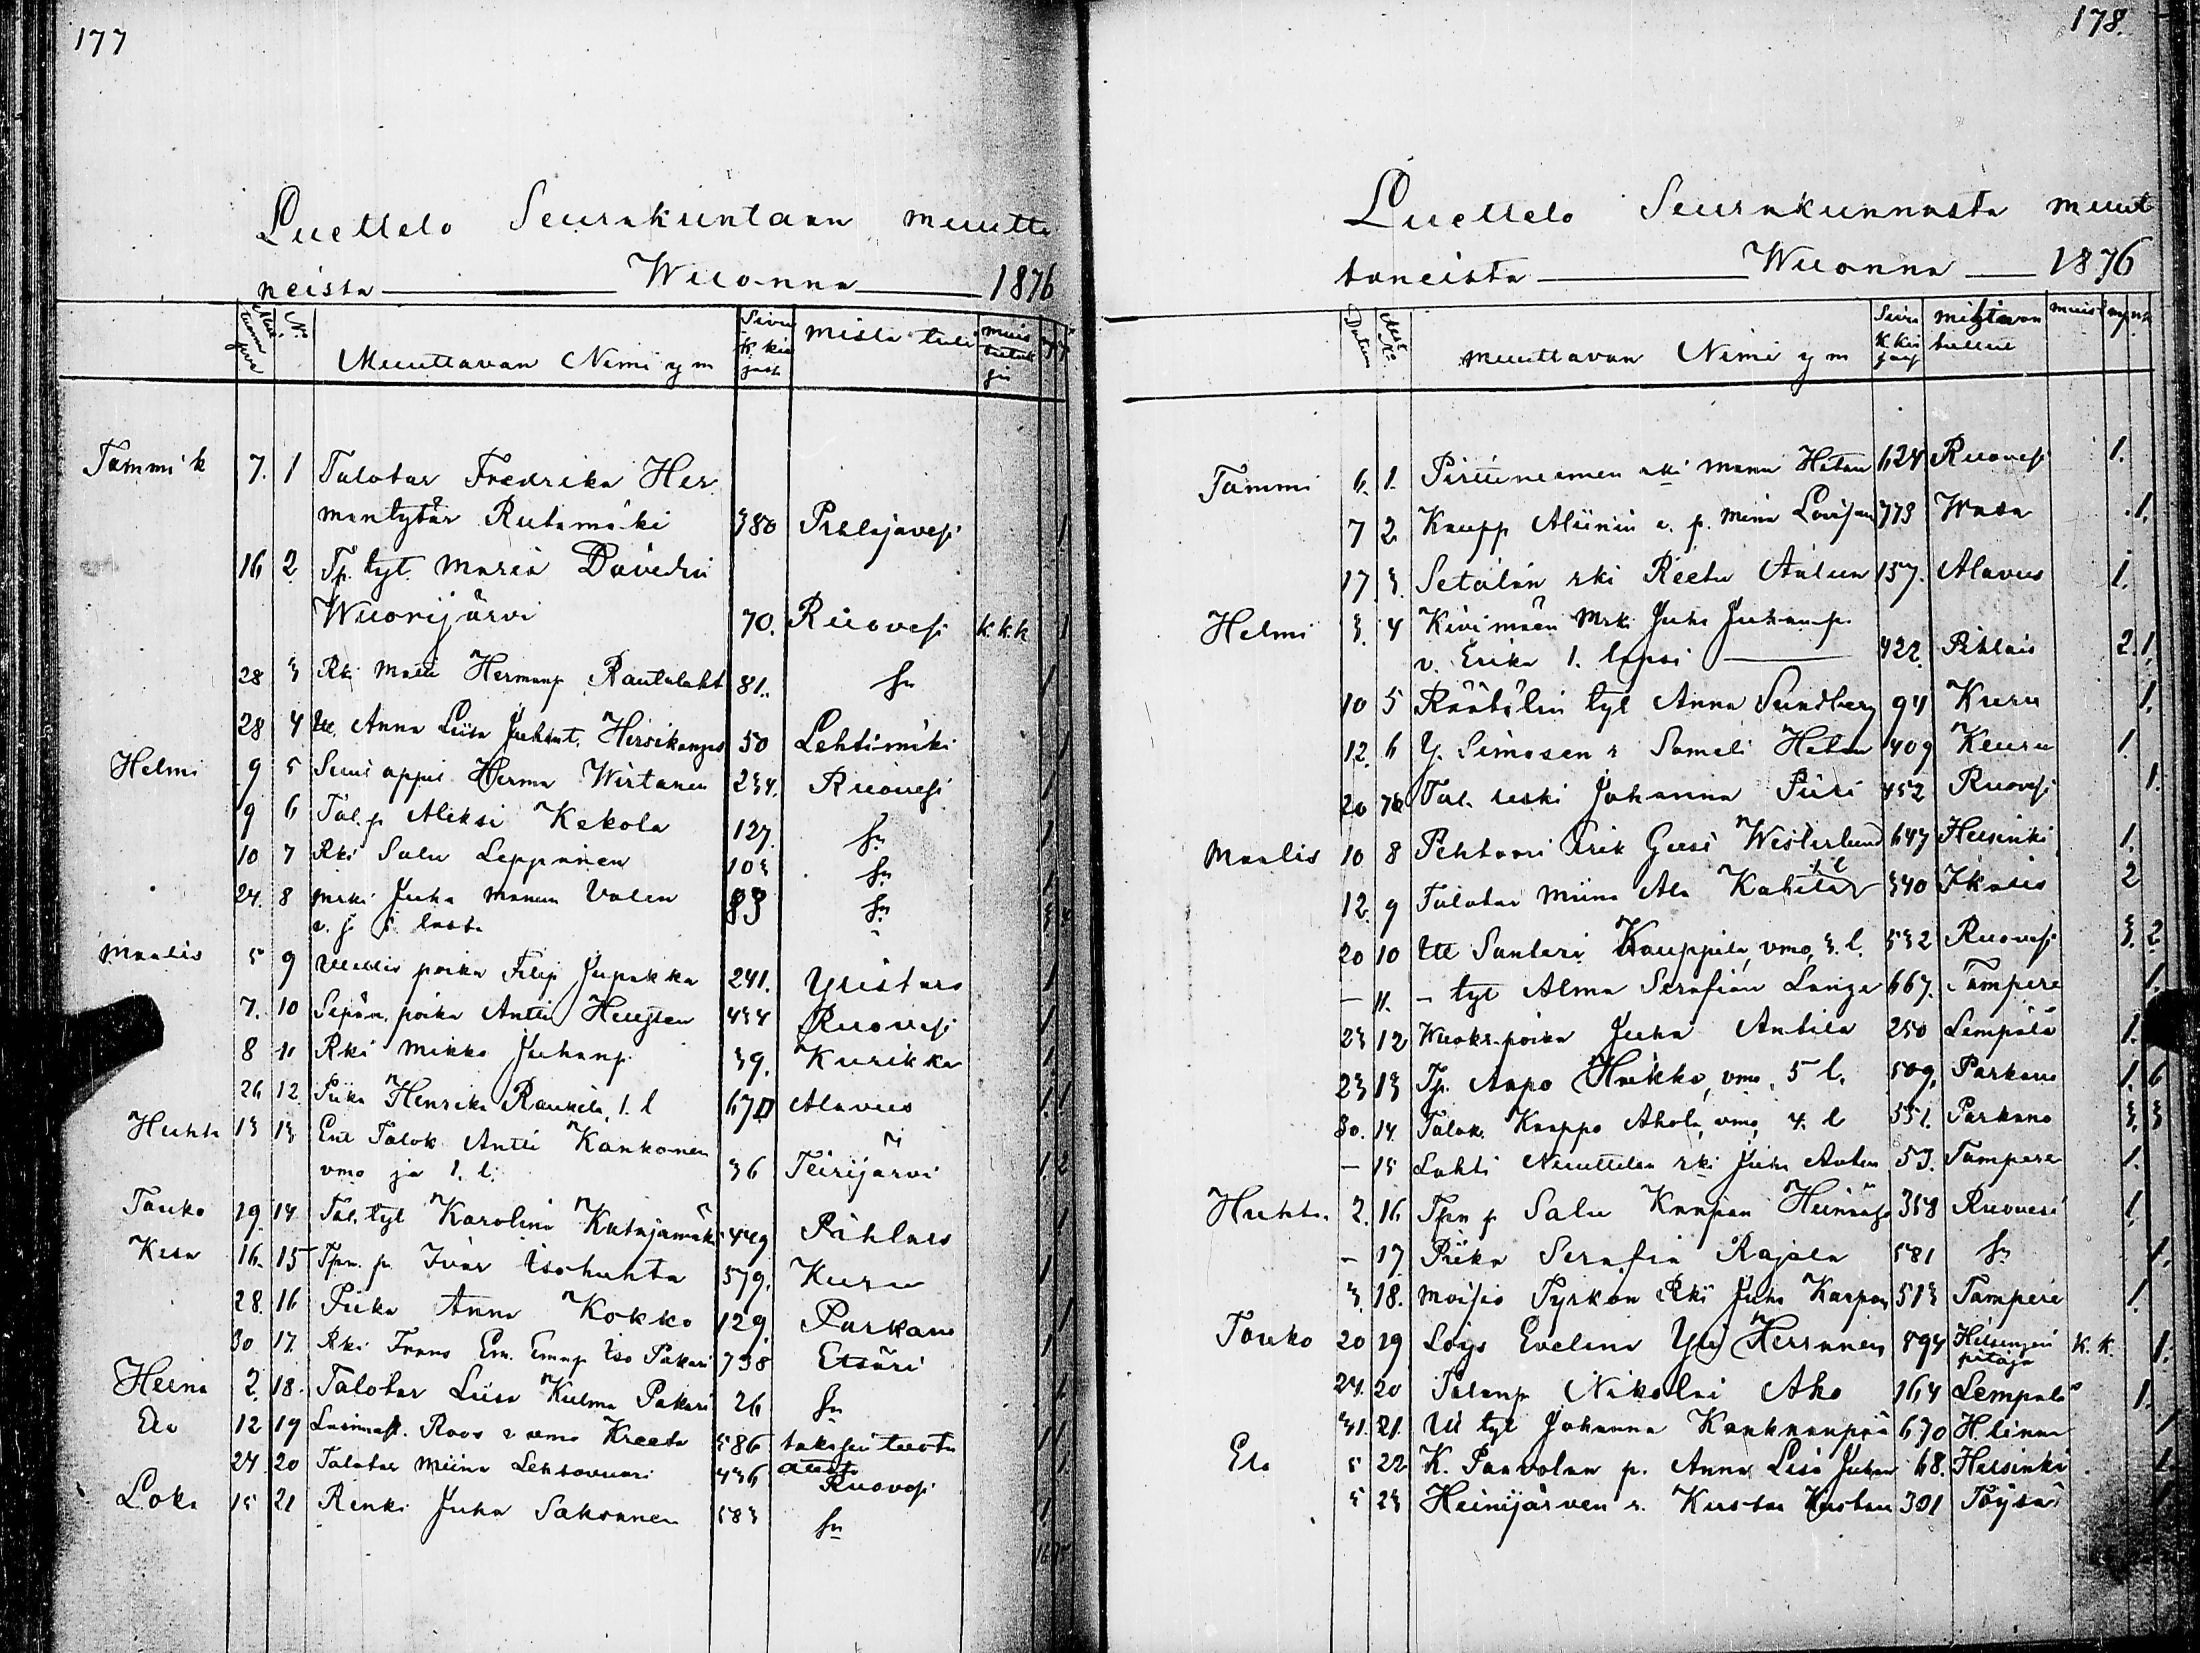 177
Luettelo Seurakuntaan muutta
neista Wuonna 1876
No Muuttavan Nimi y m Sivu k. kir jasta mista tuli muis tutuk sia
Tammi k 7. 1 Talotar Fredrika Her
mantytär Rutamäki 380 Pihlajavesi 1
16 2 Tp. tyt. Maria Davidin
Wuorijärvi 70. Ruovesi k.k.k 1
28 3 Rki Matti Hermanp Rautalaht 81. sn 1
28 4 Itll. Anna Liisa Juhant. Hirsikangas 50 Lehtimäki 1
Helmi 9 5 Herma Wirtanen 234. Ruovesi 1
9 6 Tal.p Aleksi Kekola 127. sn 1
10 7 Rki Salu Leppänen 103 sn 1
24. 8 mrki Juha Manun Valen 83 sn
v. j lasta
Maalis 5 9 poika Filip Jupakka 241. Ylistaro 1
7. 10 Sepän poika Antti 434 Ruovesi 1
8 11 Rki Mikko Juhanp 39. Kurikka 1
26 12. Piika Henrika Raukila, 1. l 670 Alavus 1.1
Huhti 13 13 Ent Talok Antti Kankonen
vmo ja 1. l. 36 Teirijärvi 1.2
Touko 19. 14 Tal. tyt Karolina Katajamäki 449 Pihlais 1.
Kesä 16. 15 Tpn. p Ivar Isohuhta 579. Kuru 1
28. 16 Piika Anna Kokko 129. Parkano 1
30 17. Rki Frans Em. Emanp Iso Pakari 738 Etsäri 1
Heinä 2. 18. Talotar Liisa Kulma Pakari 26 sn 1
Elo 12 19 Roos v vmo Kreeta 586 takasin tuotu 1 1
24 20 Talotar Miina Lehtovuori 436 Ruovesi 1
Loka 15 21 Renki Juha Saksanen 583 sn 1
178.
Luettelo Seurakunnasta muut
taneista Wuonna 1876
Datum No muuttavan Nimi y m Sivu k. kir jasta mihinkä tullut muist
Tammi 6. 1. Piriiniemen rki Manu Hetan 624 Ruovesi 1.
7 2 Kaupp Aliinin e. p. Mina Lovisan 773 Wasa 1.
17 3. Setälän rki Reetu Aulun 157. Alavus 1.
Helmi 3. 4 Kivimäen Mrki Juha Juhanp.
v. Erika 1. lapsi 422. Pihlais 2.1.
10 5 Räätälin tyt Anna Sundberg 94 Kuru 1.
12. 6 Y. Simosen r Sameli Helan 409 Keuru 1.
20 7 Tal. leski Johanna Piiri 452 Ruovesi 1.
Maalis 10 8 Pehtori Erik Gust Westerlund 647 Helsinki 1.
12. 9 Talotar Miina Ala Kahila 1. l 340 Ikalis 2
20 10 Itll Santeri Kauppila, vmo, 3. l. 532 Ruovesi 3. 2
— 11. — tyt Alma Serafian Lange 667. Tampere 1.
23 12 Wuokr. poika Juha Antila 250 Lempälä 1.
23 13 Tp. Aapo Heikko, vmo, 5 l. 509. Parkano 1. 6
30. 14. Talok. Kaappo Ahola, vmo, 4. l 551. Parkano 3. 3
— 15 Lahti Neuttelan rki Juha Antin 53. Tampere 1.
Huhti. 2. 16 Tpn p Salu Kaapan 358 Ruovesi 1.
— 17. Piika Serafia Rajala 581 sn 1.
3. 18. Moisio Pyrkön Rki Juha Karpan 513 Tampere 1.
Touko 20 19 Löys Evelina Yli Herranen 494 Helsingin pitäjä k. k. 1.
24. 20 Talanp Nikolai Aho 164 Lempälä 1.
31. 21. Itl tyt Johanna Kankaanpää 670 H.linna 1
Elo 5 22 K. Paavolan p. Anna Lisa Juhan 68. Helsinki 1.
5 23 Heinijärven r. Kustaa Kustan 301 Töysä 1